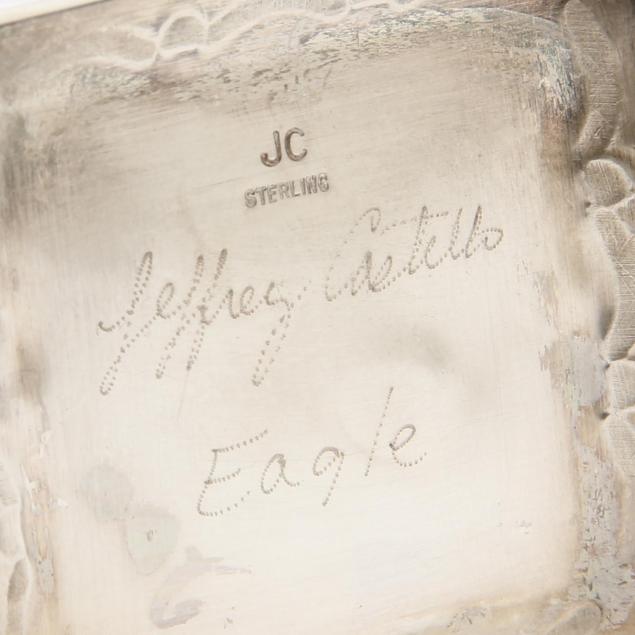 JC
STERLING
Jeffrey Castello
Eagle